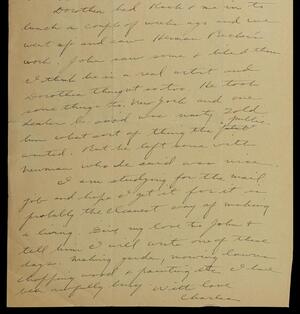 Dorothea had Hank & me in to
lunch a couple of weeks ago and we
went up and saw Herman
work. John saw some & liked them
I think he is a real artist and
Dorothea thought so too. He took
some things to New York and one
dealer he said was nasty told
him what sort of thing the public
wanted. But he left some with
Newman who he said was nice.
I am studying for the mail
job and hope I get it for it is
probably the cleanest way of making
a living. Give my love to John &
tell him I will write one of these
days. Making garden, mowing lawns
chopping wood & painting etc I have
been awfully busy With love
Charles